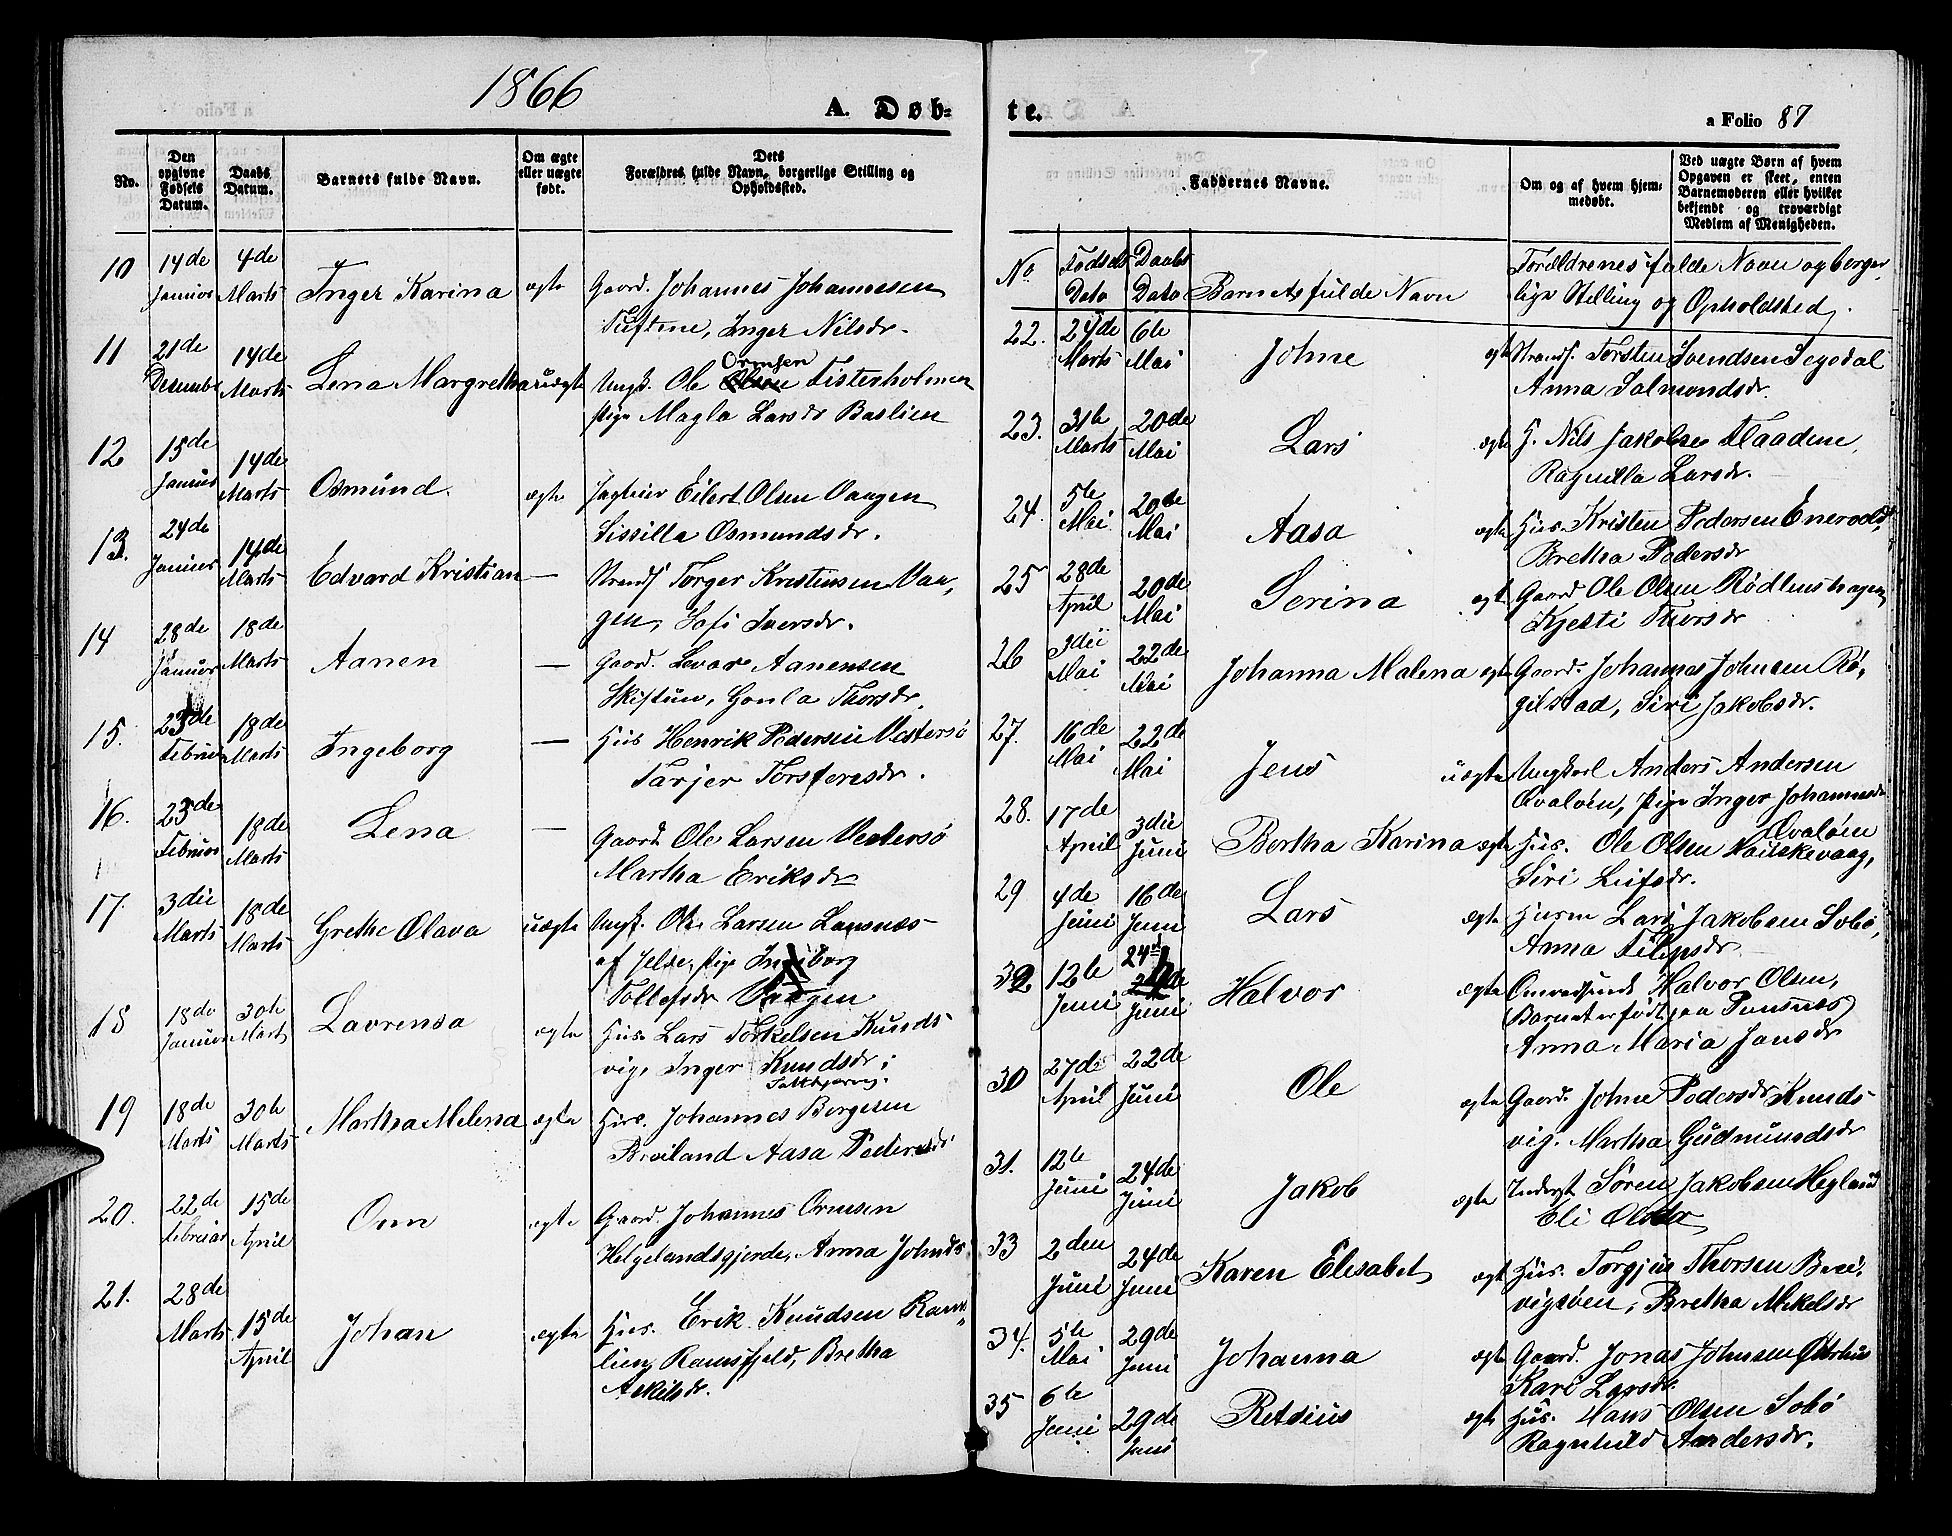 1866
A. Døb-
No.
Den opgivne Fødsels Datum.
Daabs Datum.
Barnets fulde Navn.
Om ægte eller uægte født.
Dets Forældres fulde Navn, borgerlige Stilling og Opholdssted.
10 14de Januar 4de Marts Inger Karina ægte Gaard. Johannes Johannesen
Tuftene, Inger Nilsdr.
11 21de Desember 14de Marts Lena Margretha uægte Ungk. Ole Ormsen Fisterholmen
Pige Magla Larsdr Baslien
12 15de Januar 14de Marts Osmund. ægte Eilert Olsen Vaagen
Sissilla Osmundsdr.
13. 24de Januar 14de Marts Edvard Kristian — Strands. Torger Kristensen Vaa,
gen, Sofi Iversdr.
14 28de Januar 18de Marts Aanen — Gaard. Levare Aanensen
Skiftun, Gonla Thorsdr.
15. 23de Februar 18de Marts Ingeborg — Huus Henrik Pedersen Vestersø
Tarjer Torstensdr.
16. 23de Februar 18de Marts Lena — Gaard Ole Larsen Vestersø
Martha Eriksdr
17. 3die Marts 18de Marts Grethe Olava uægte Ungk. Ole Larsen Lansnæs
af Jelse, Pige Ingeborg
Tollefsdr Vaagen
18 18de Januar 30te Marts Lavrensa ægte Huus. Lars Torkelsen Knuds
vig, Inger Knudsdr;
19 18de Marts 30te Marts Martha Melena ægte Huus. Johannes Borgesen
Breiland Aasa Pedersdr
20. 22de Februar 15de April Onn ægte Gaard. Johannes Ormsen
Helgelandsgjerde, Anna Johnsdr
21. 28de Marts 15de April Johan ægte Huus. Erik Knudsen Ram,
lien, Ramsfjeld, Bretha
Askilsdr.
te.
a Folio 87
Faddernes Navne.
Om og af hvem hjemmedøbt.
Ved uægte Børn af hvem Opgaven er skeet, enten Barnemoderen eller hvilket bekjendt og troværdigt Medlem af Menigheden.
No Fødsels Dato Daabs Dato Barnets fulde Navn Forældrenes fulde Navn og borger
lige Stilling og Opholdsted.
22. 24de Marts 6te Mai Johne ægte Strands. Torsten Svendsen Segedal
Anna Salmondsdr.
23. 31te Marts 20de Mai Lars ægte H. Nils Jakobsen Flaadene,
Ragnilla Larsdr.
24. 5te Mai 20de Mai Aasa ægte Huus. Kristen Pedersen Enevold,
Bretha Pedersdr
25 28de April 20de Mai Serina ægt Gaard Ole Olsen Rødlenshagen
Kjesti Thorsdr
26 3die Mai 22de Mai Johanna Malena ægte Gaard. Johannes Johnsen Rø,
gilstad, Siri Jakobsdr.
27. 16de Mai 22de Mai Jens uægte Ungkarl Anders Andersen
Qvaløen, Pige Inger Johannesdr
Qvaløen
28. 17de April 3die Juni Bertha Karina ægte Huus. Ole Olsen
Siri Leifsdr.
29 4de Juni 16de Juni Lars ægte Lars Jakobsen Sobø,
Anna Filipsdr
32 12te Juni 24de Juni Halvor ægte Halvor Olsen,
Barnet er født paa
Anna Maria Jansdr
30 27de April 22de Juni Ole ægte Gaard. Johne Pedersdr Knuds
vig. Martha Gudmundsdr
31. 12te Juni 24de Juni Jakob ægte Inderst Søren Jakobsen Hegland
Eli Olsdr
33 2den Juni 24de Juni Karen Elisabet ægt Huus. Torgjus Thorsen Brei,
vigsøen, Bretha Mikelsdr
34. 5te Mai 29de Juni Johanna ægte Gaard. Jonas Johnsen
Kari Larsdr
35 6te Juni 29de Juni Retsius ægte Huus. Hans Olsen Sobø
Ragnhild Andersdr.